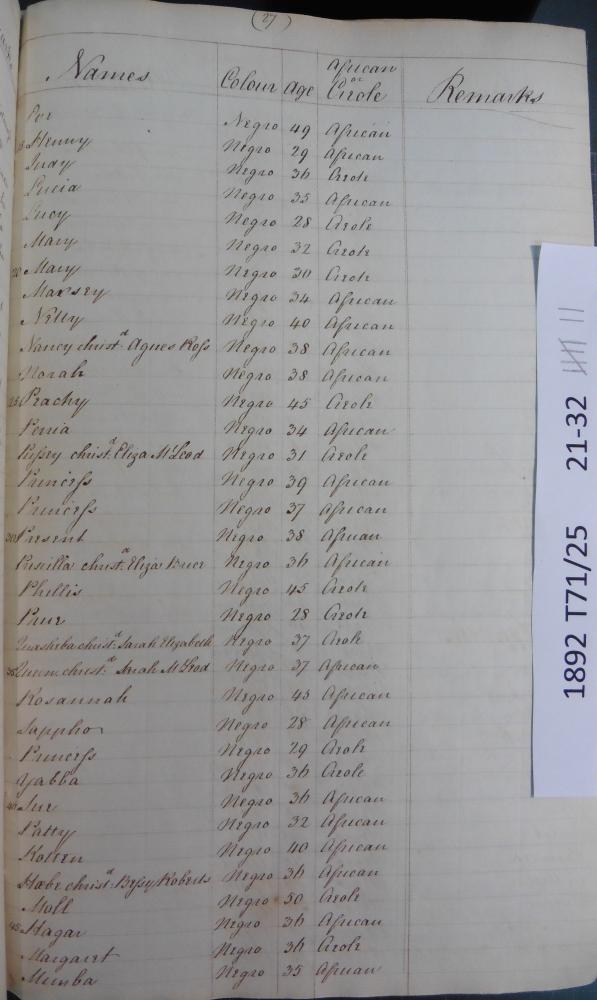 (27)
Names Colour Age African or Creole Remarks
Negro 49 African
Henny Negro 29 African
Judy Negro 36 Creole
Lucia Negro 35 African
Lucy Negro 28 Creole
Mary Negro 32 Creole
20 Mary Negro 30 Creole
Maxsey Negro 34 African
Nelly Negro 40 African
Nancy christd. Agnes Ross Negro 38 African
Norah Negro 38 African
25 Peachy Negro 45 Creole
Penia Negro 34 African
christd. Eliza McLeod Negro 31 Creole
Princess Negro 39 African
Princess Negro 37 African
30 Present Negro 38 African
Priscilla christd. Eliza Negro 36 African
Phillis Negro 45 Creole
Negro 28 Creole
Quasheba christd. Sarah Elizabeth Negro 37 Creole
35 Queen christd. McLeod Negro 37 African
Rosannah Negro 43 African
Sappho Negro 28 African
Princess Negro 29 Creole
Yabba Negro 36 Creole
40 Sue Negro 36 African
Patty Negro 32 African
Negro 40 African
christd. Bessy Roberts Negro 36 African
Moll Negro 50 Creole
45 Hagar Negro 36 African
Margaret Negro 36 Creole
Mimba Negro 35 African
1892 T71/25 21-32